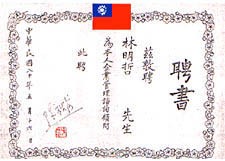 聘書
茲敦聘
林明哲 先生
為本人企業管理諮詢顧問
此聘
中華民國八十年五月十六日